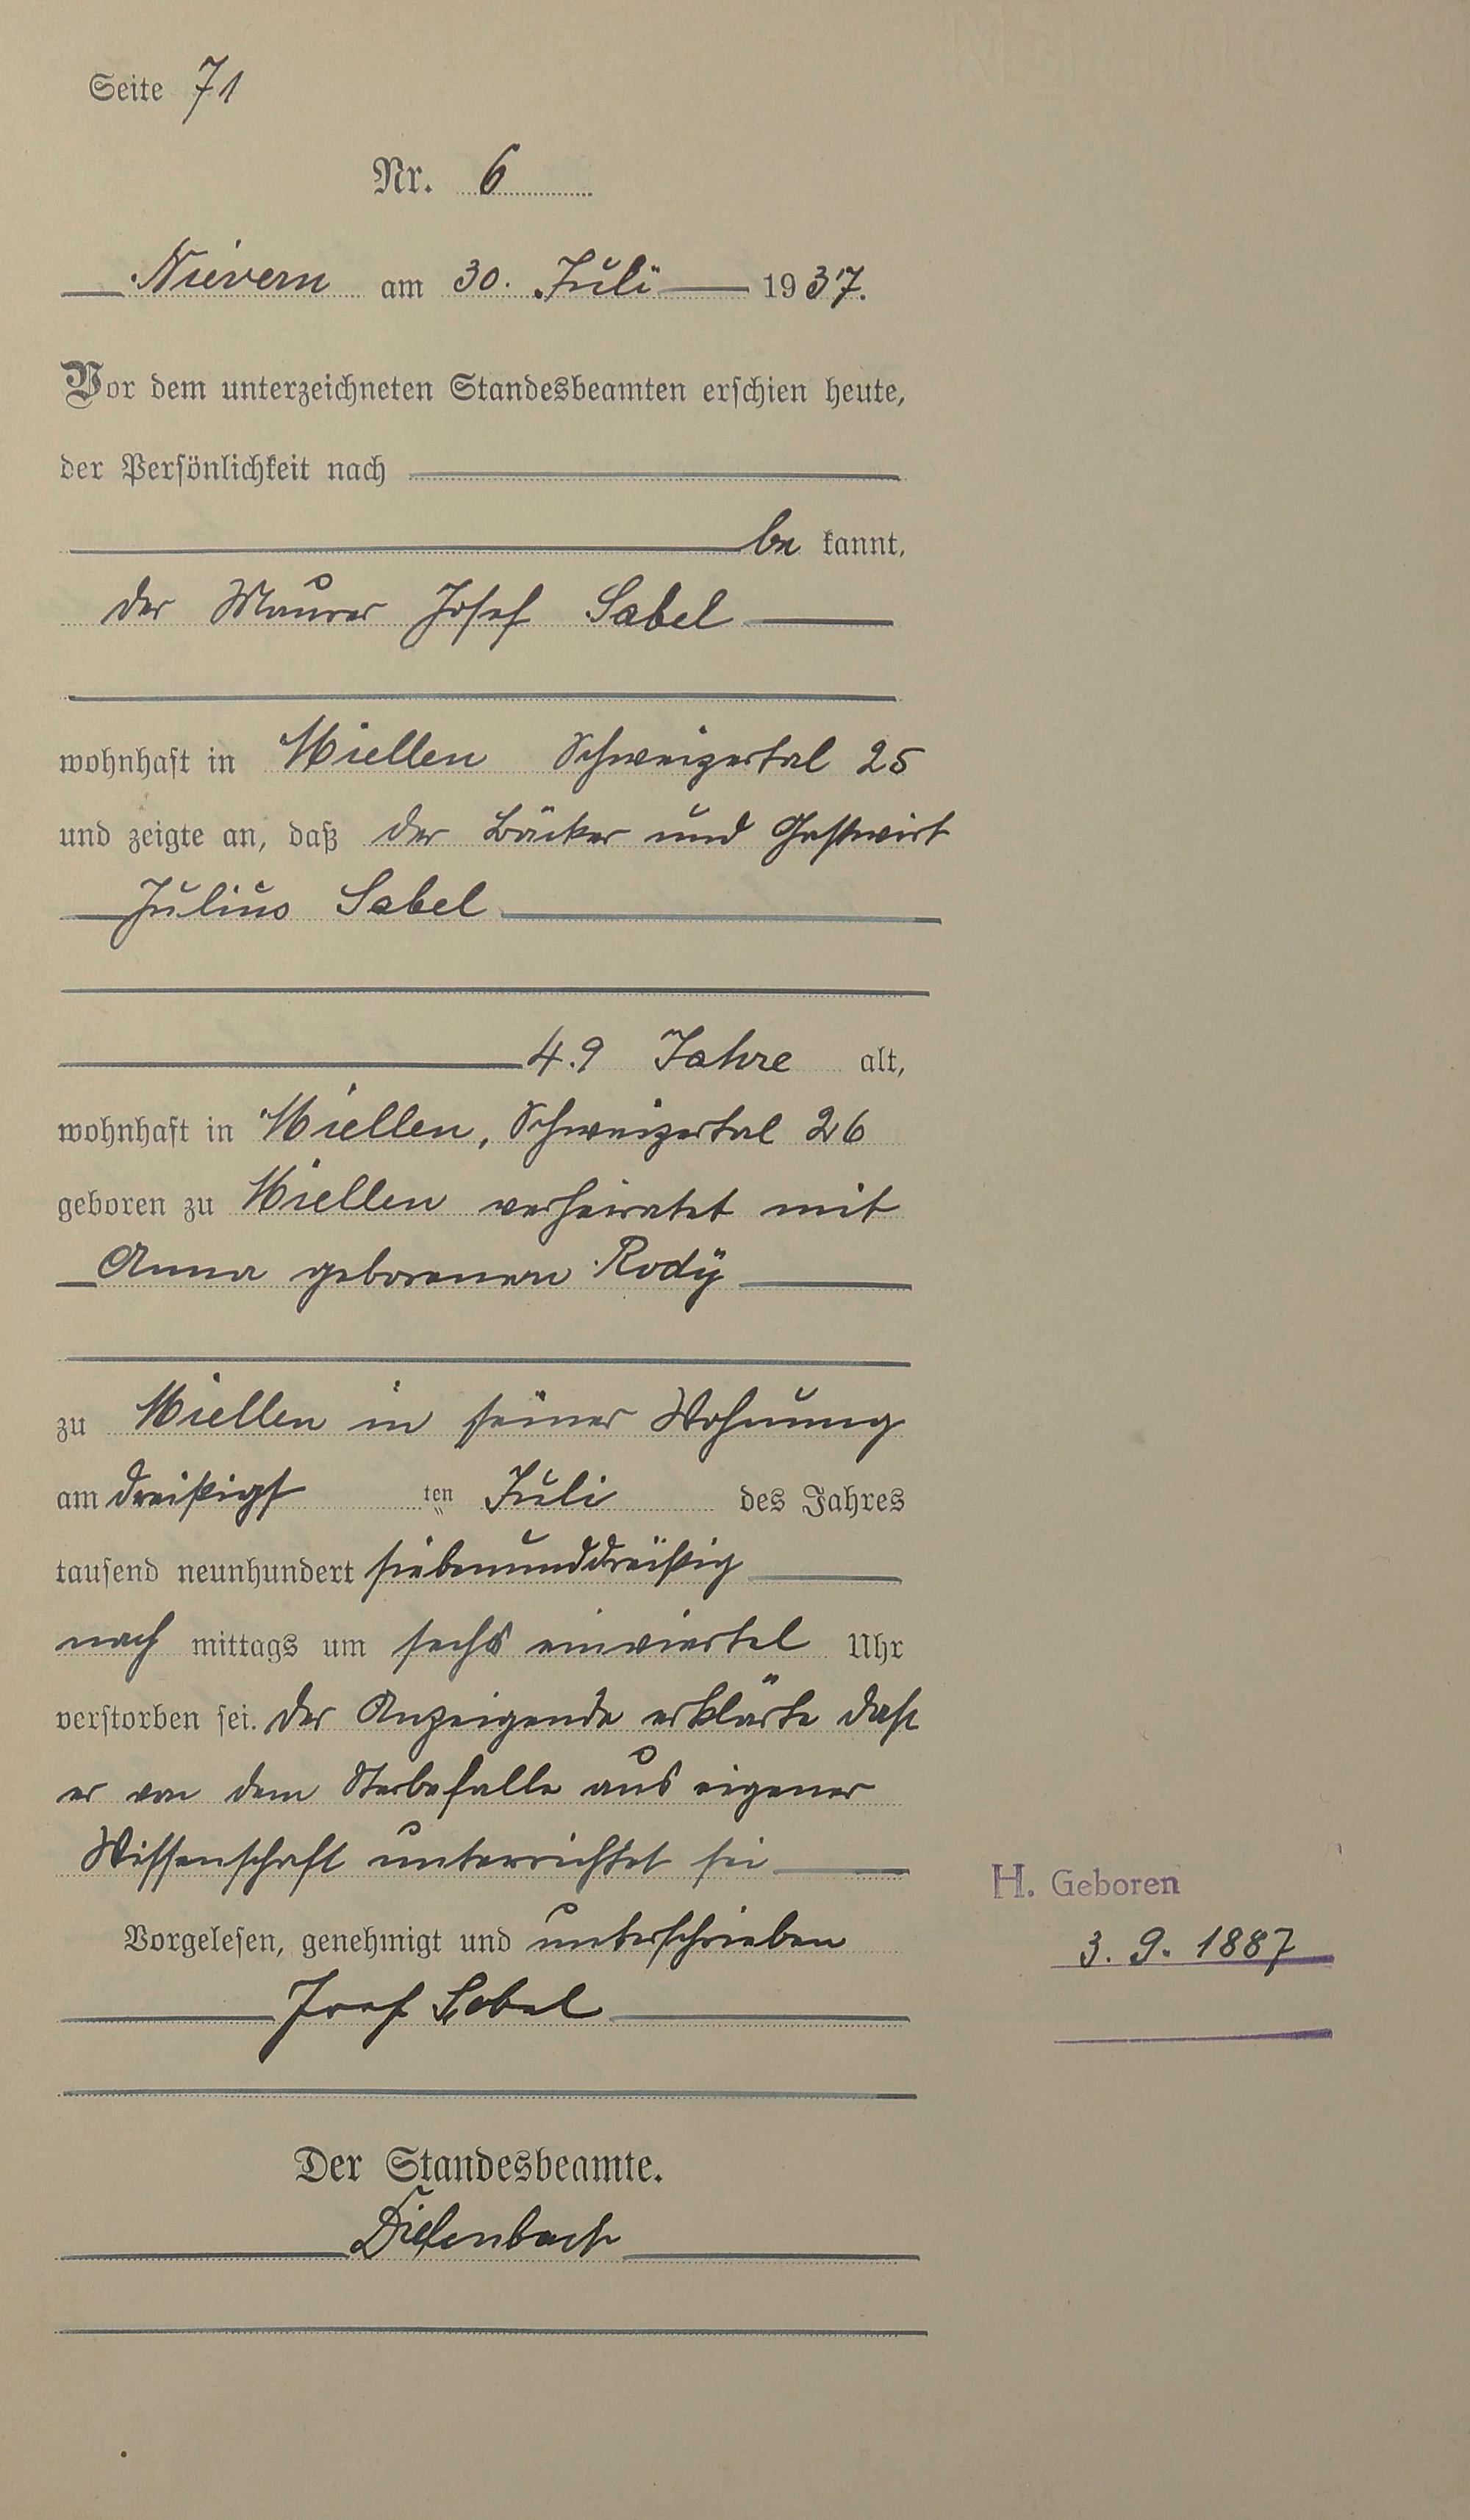 Seite 71
Nr. 6
Nievern am 30. Juli 1937.
Vor dem unterzeichneten Standesbeamten erschien heute,
der Persönlichkeit nach
be kannt,
der Maurer Josef Sabel
wohnhaft in Miellen Schweizertal 25
und zeigte an, daß der Bäcker und Gastwirt
Julius Sabel
49 Jahre alt,
wohnhaft in Miellen, Schweizertal 26
geboren zu Miellen verheiratet mit
Anna geborenen Rody
zu Miellen in seiner Wohnung
am dreißigs ten Juli des Jahres
tausend neunhundert siebenunddreißig
nach mittags um sechs einviertel Uhr
verstorben sei. Der Anzeigende erklärte daß
er von dem Sterbefalle aus eigener
Wissenschaft unterrichtet sei
Vorgelesen, genehmigt und unterschrieben
Josef Sabel
Der Standesbeamte.
Diefenbach
H. Geboren
3. 9. 1887